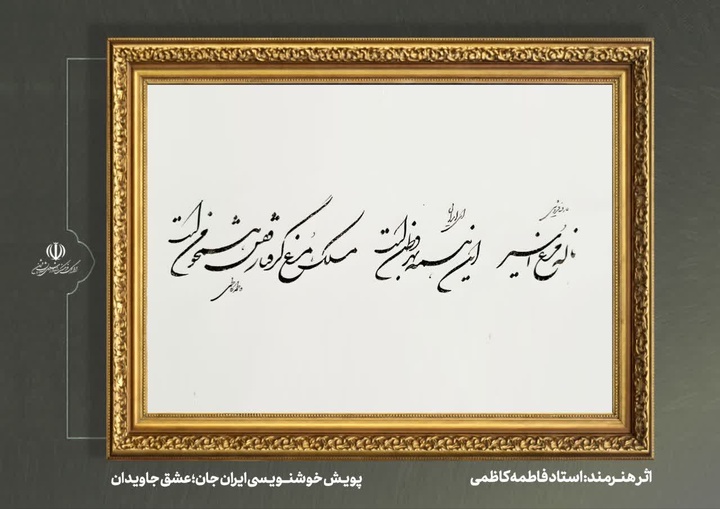 ناله مرغ اسیر این همه بهر وطن است مسلک مرغ گرفتار قفس همچو من است
اثر هنرمند: استاد فاطمه کاظمی
پویش خوشنویسی ایران جان؛ عشق جاویدان